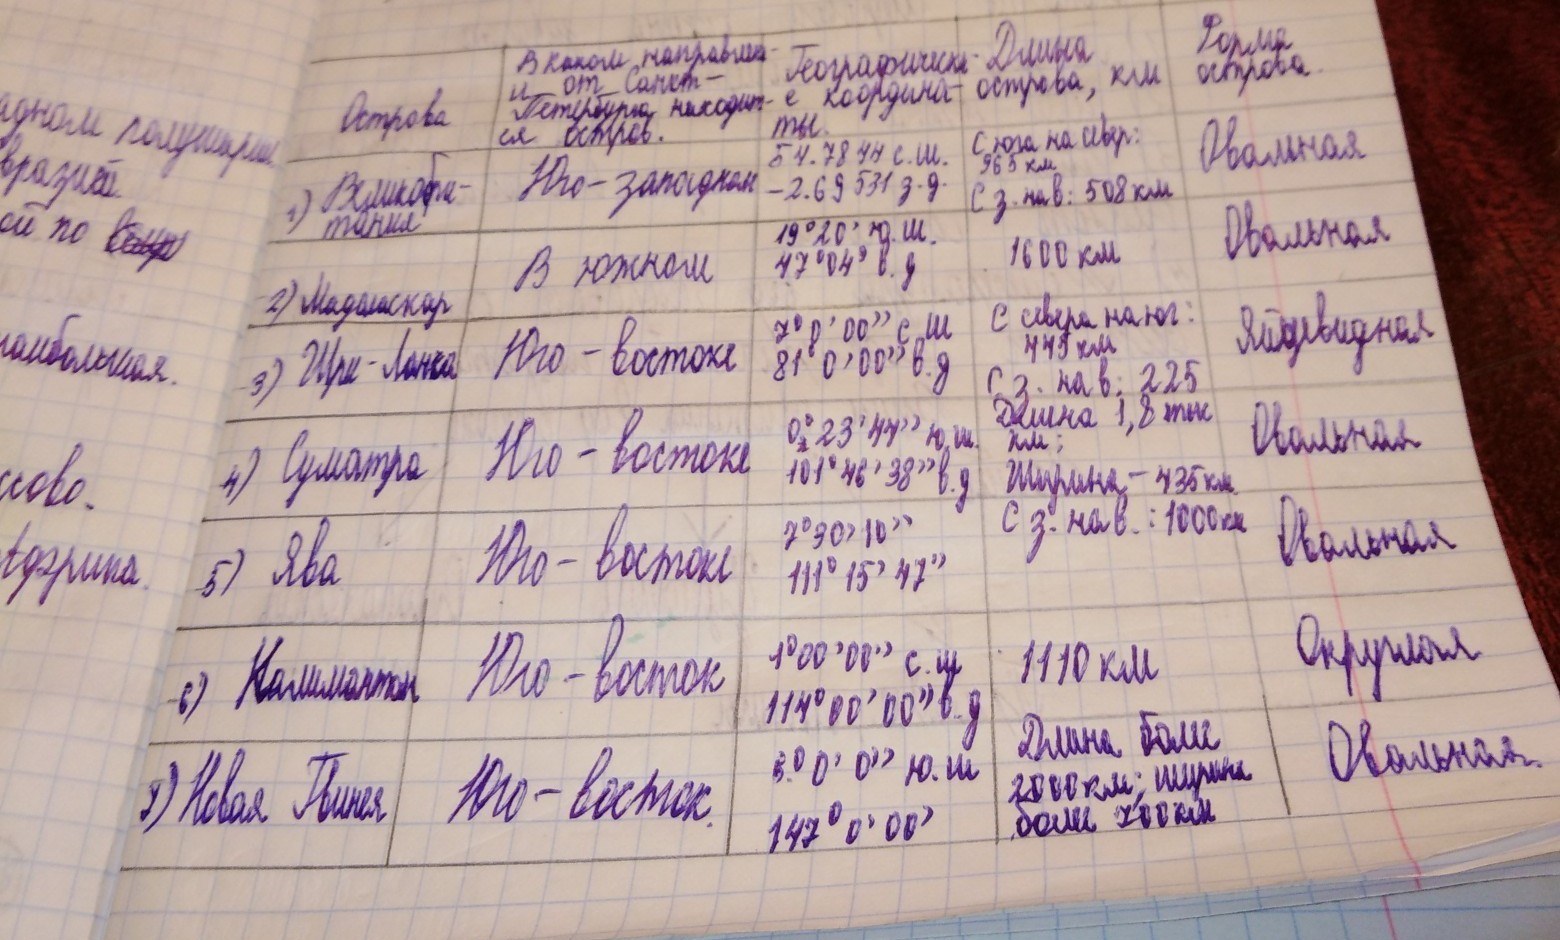 адном полушарии.
вразией
ой по
наибольшая.
ссово.
Адэрика.
Острова
В каком направлен-
и от Санкт-
Петербурга находит-
ся остров.
Географическа-
е координа-
ты.
Длина
острова, км
Форма
острова.
1) Великобри-
тания
Юго-западном
54.7844 с.ш.
-2.69531 з.д.
С юга на север:
965 км
С з. на в: 508 км
Овальная
2) Мадагаскар
В южном
19°20' ю.ш.
47°04' в.д
1600 км
Овальная
3) Шри-Ланка
Юго-востоке
7°0'00" с.ш
81°0'00" в.д
С севера на юг:
445 км
С з. на в: 225
Яйцевидная
4) Суматра
Юго-востоке
0°23'44" ю.ш.
101°46'38" в.д
Длина 1,8 тыс
км;
Ширина - 435 км
Овальная
5) Ява
Юго-востоке
7°30'10"
111°15'47"
С з. на в.: 1000 км
Овальная
6) Калимантан
Юго-восток
1°00'00" с.ш
114°00'00" в.д
1110 км
Округлая
7) Новая Гвинея
Юго-восток.
5.°0'0" ю.ш
147°0'00'
Длина боле
2000 км; ширина
боле 700 км
Овальная.